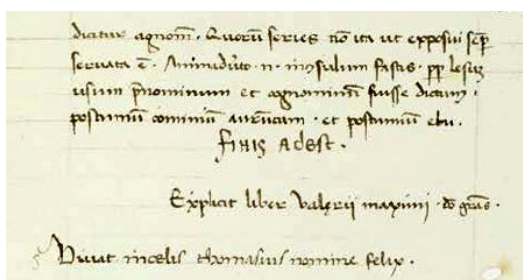 dicitur agnom̄. Quorū series nō ita ut exposui sēp
seruata ē. Animaduto. n. in fastis.
usum p̄nominum et cognominū fuisse dictum
postumū cominiū auruncum. et postumū ebu.
finis adest.
Explicit liber Valerii maximi. dō grās.
Viuat in celis thomasius nomine felix.